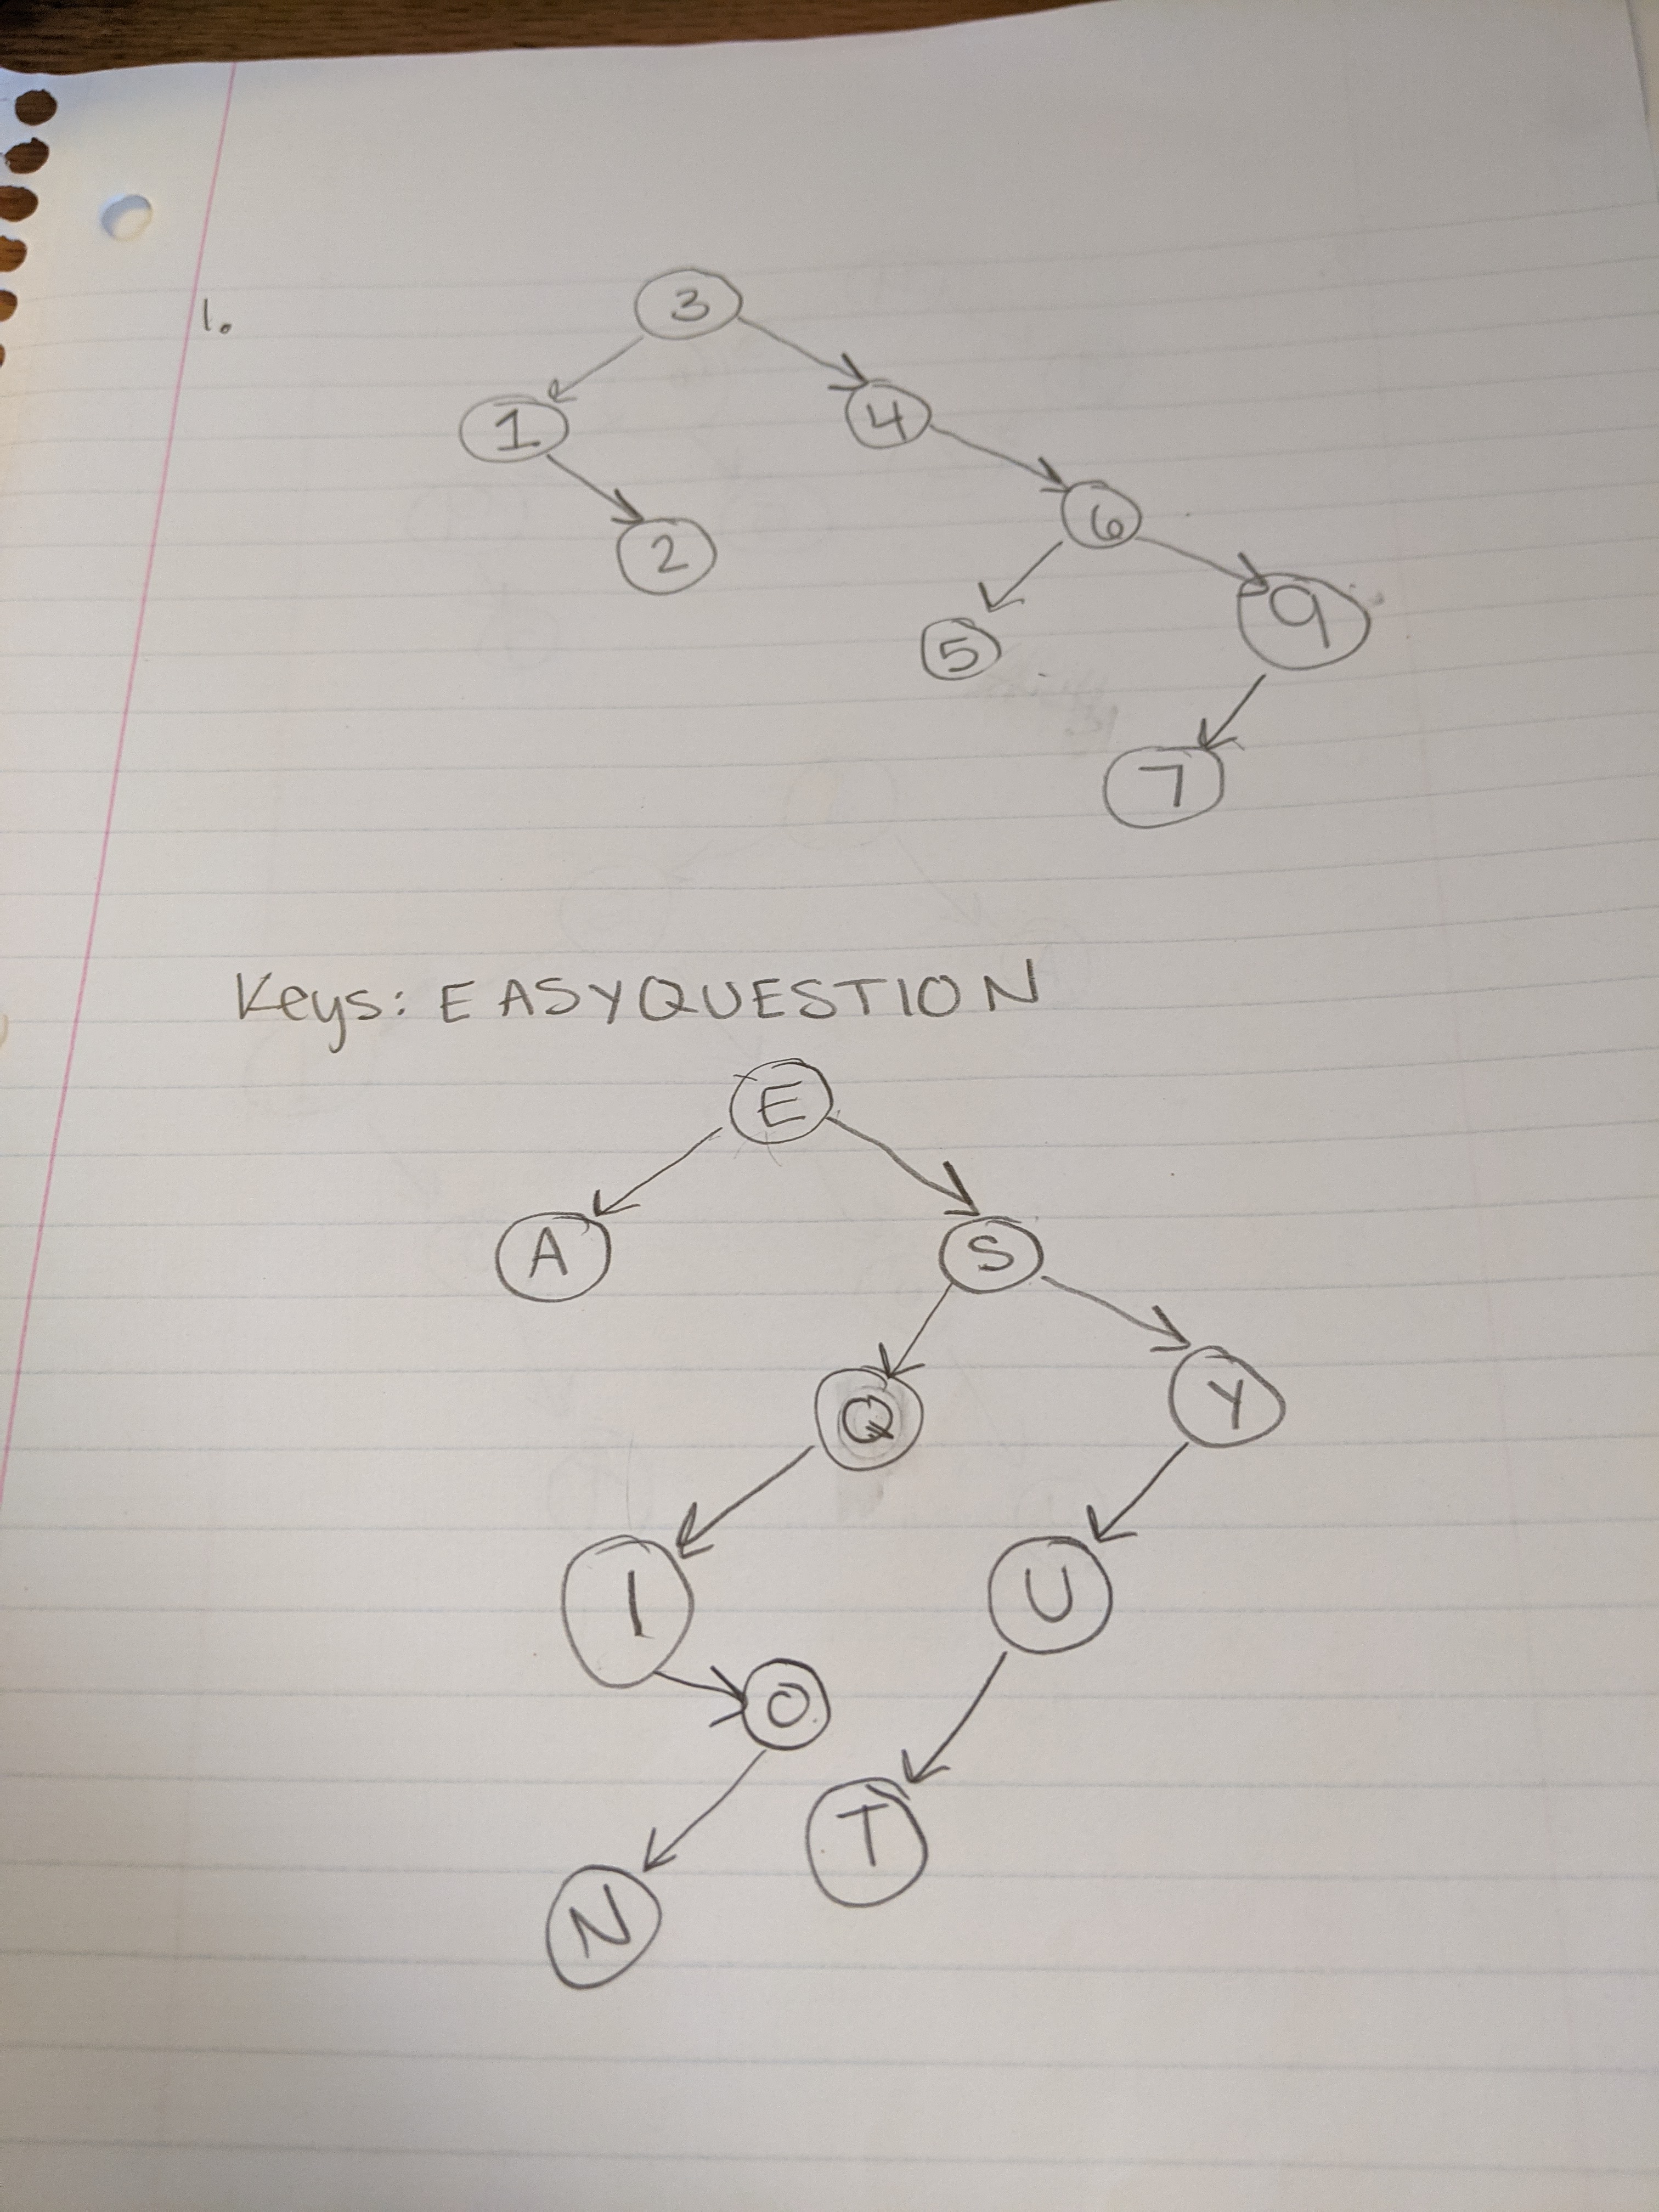 1.
3
1 4
2 6
5 9
7
Keys: EASYQUESTION
E
A S
Q Y
I U
O
T
N